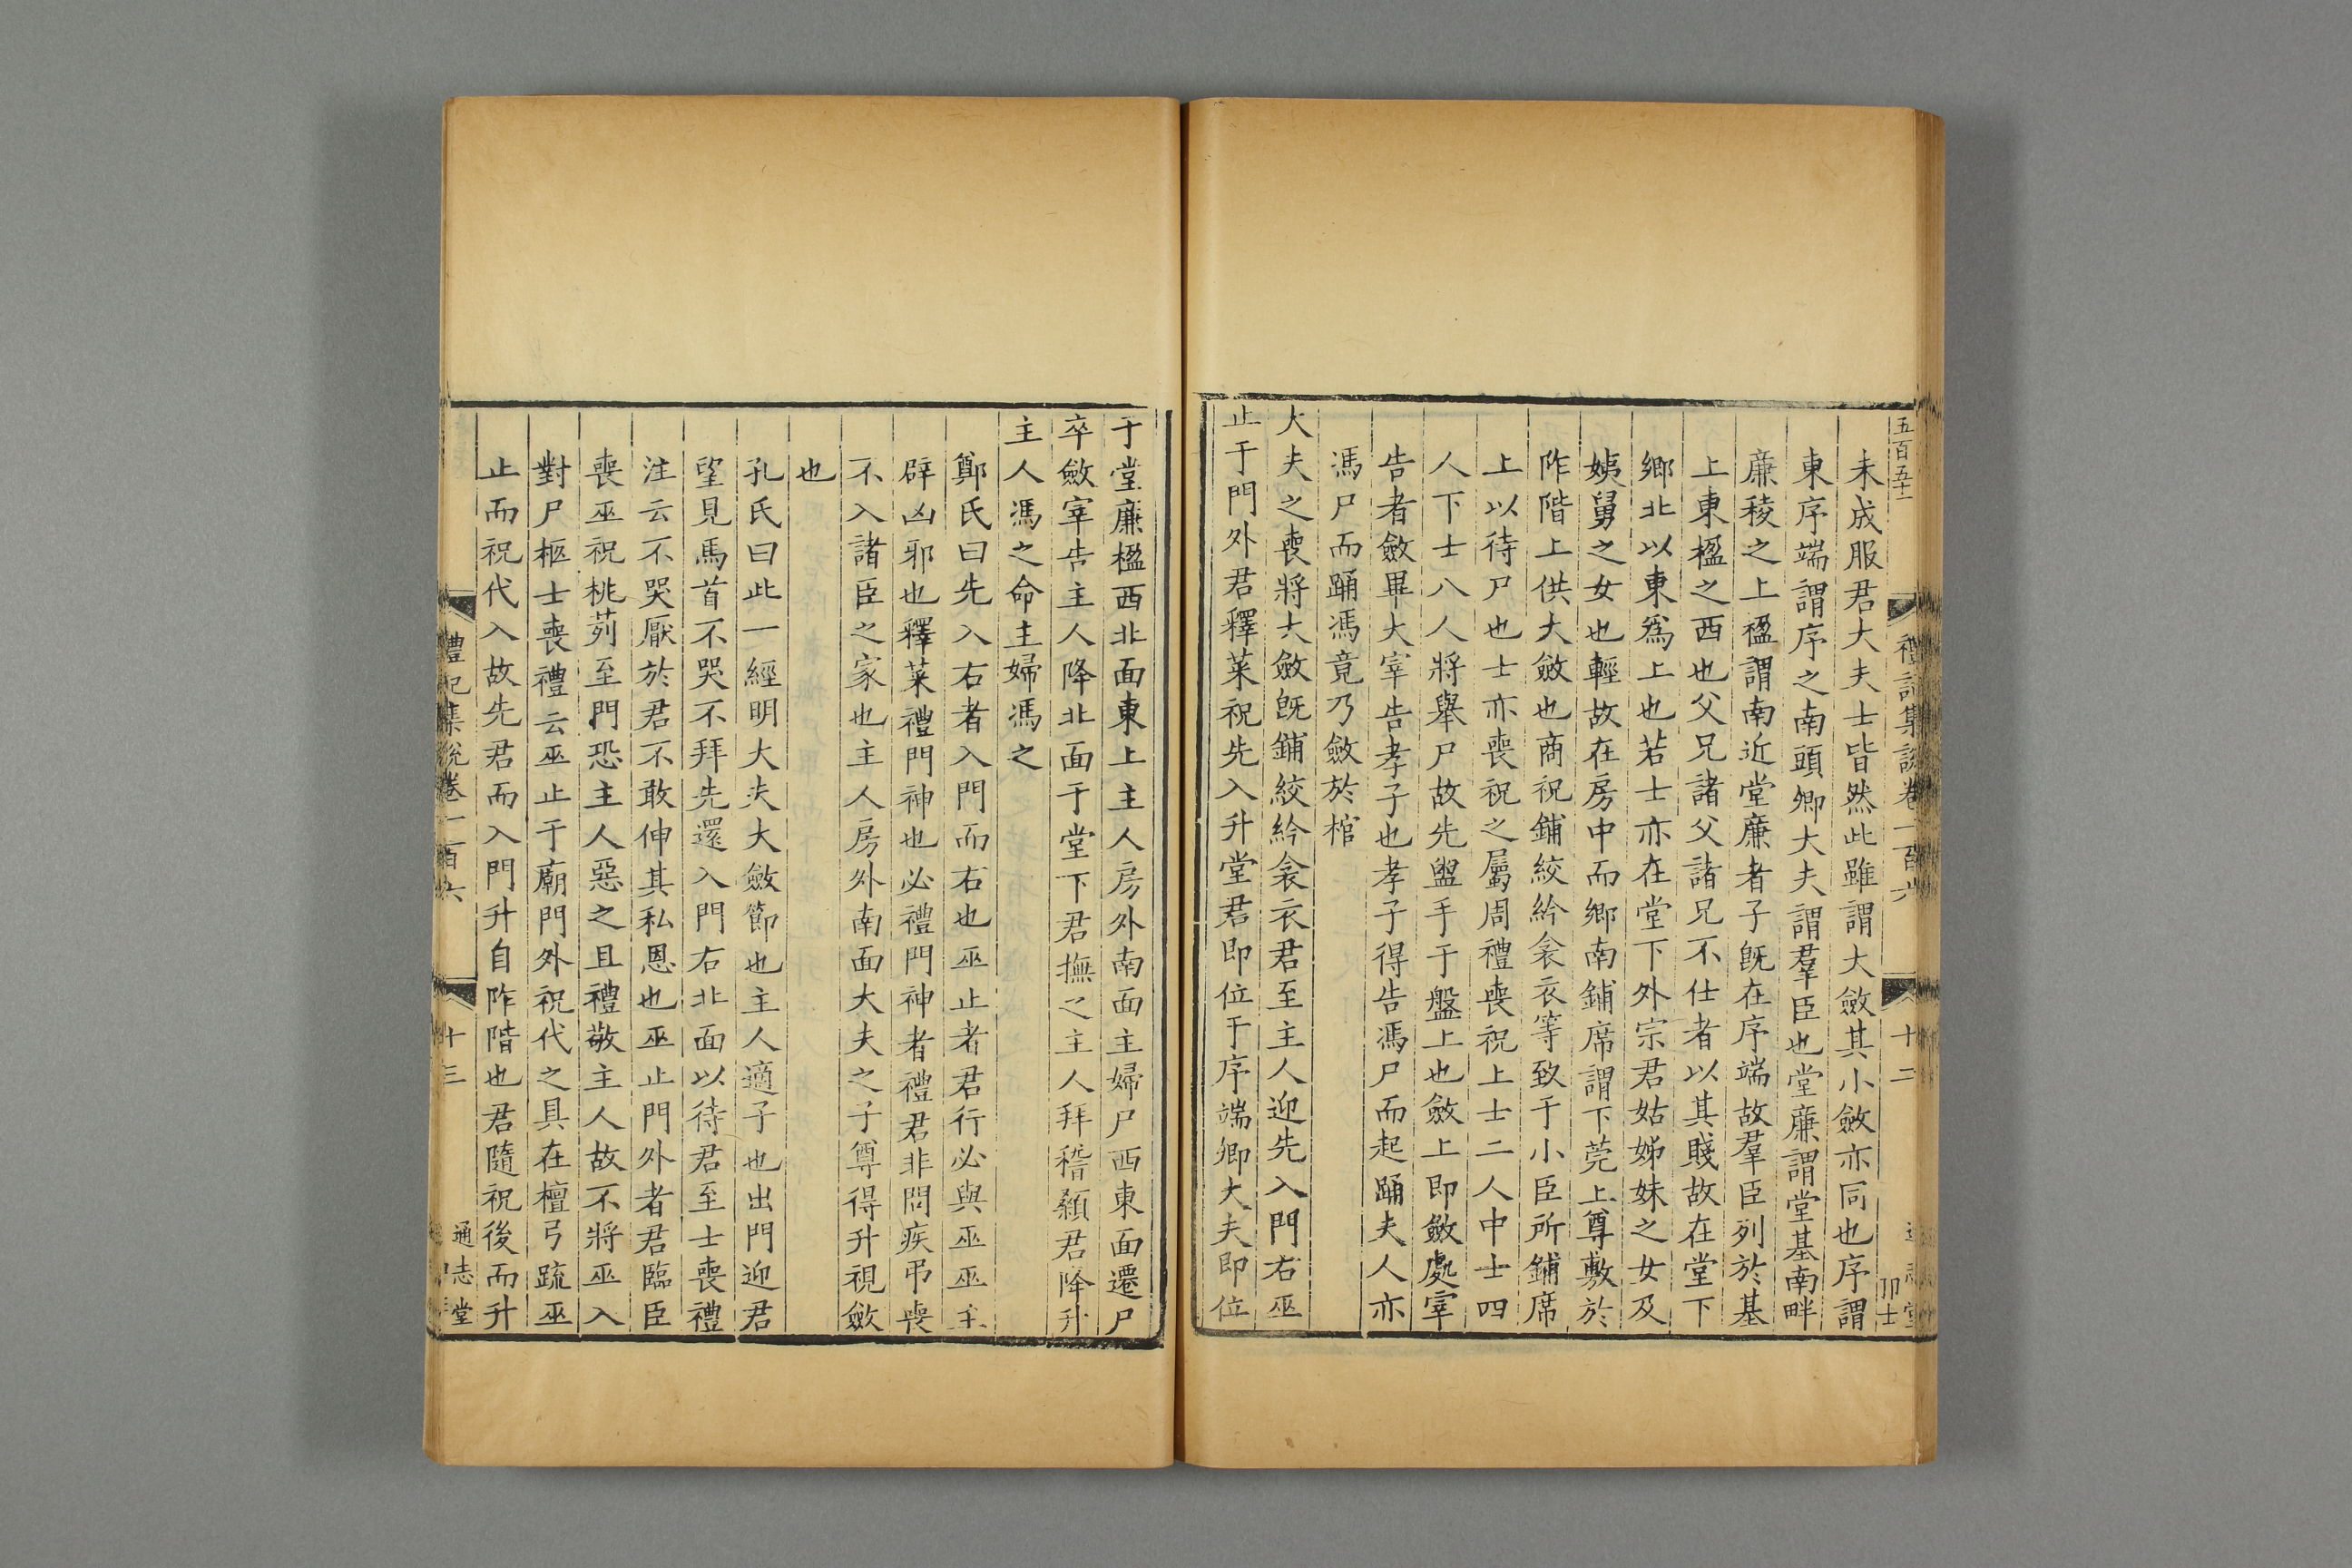 五百五十
禮記集說卷一百六
十二
未成服君大夫士皆然此雖謂大斂其小斂亦同也序謂
東序端謂序之南頭卿大夫謂羣臣也堂廉謂堂基南畔
廉稜之上楹謂南近堂廉者子旣在序端故羣臣列於基
上東楹之西也父兄諸父諸兄不仕者以其賤故在堂下
鄉北以東爲上也若士亦在堂下外宗君姑姊妹之女及
姨舅之女也輕故在房中而鄉南鋪席謂下莞上簟敷於
阼階上供大斂也商祝鋪絞紟衾衣等致于小臣所鋪席
上以待尸也士亦喪祝之屬周禮喪祝上士二人中士四
人下士八人將舉尸故先盥手于盤上也斂上即斂處宰
告者斂畢大宰告孝子也孝子得告馮尸而起踊夫人亦
馮尸而踊馮竟乃斂於棺
大夫之喪將大斂旣鋪絞紟衾衣君至主人迎先入門右巫
止于門外君釋菜祝先入升堂君即位于序端卿大夫即位
于堂廉楹西北面東上主人房外南面主婦尸西東面遷尸
卒斂宰告主人降北面于堂下君撫之主人拜稽顙君降升
主人馮之命主婦馮之
鄭氏曰先入右者入門而右也巫止者君行必與巫巫主
辟凶邪也釋菜禮門神也必禮門神者禮君非問疾弔喪
不入諸臣之家也主人房外南面大夫之子尊得升視斂
也
孔氏曰此一經明大夫大斂節也主人適子也出門迎君
望見馬首不哭不拜先還入門右北面以待君至士喪禮
注云不哭厭於君不敢伸其私恩也巫止門外者君臨臣
喪巫祝桃茢至門恐主人惡之且禮敬主人故不將巫入
對尸柩士喪禮云巫止于廟門外祝代之具在檀弓疏巫
止而祝代入故先君而入門升自阼階也君隨祝後而升
禮記集說卷一百六
十三
通志堂